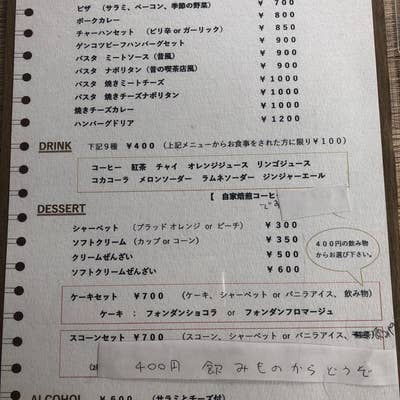 ピザ （サラミ、ベーコン、季節の野菜） ￥ 700
ポークカレー ￥ 800
チャーハンセット （ピリ辛 or ガーリック） ￥ 850
ゲンコツビーフハンバーグセット ￥ 900
パスタ ミートソース（昔風） ￥ 900
パスタ ナポリタン（昔の喫茶店風） ￥ 900
パスタ 焼きミートチーズ ￥1000
パスタ 焼きチーズナポリタン ￥1000
焼きチーズカレー ￥1000
ハンバーグドリア ￥1200
DRINK 下記9種 ￥400 （上記メニューからお食事をされた方に限り￥100）
コーヒー 紅茶 チャイ オレンジジュース リンゴジュース
コカコーラ メロンソーダー ラムネソーダー ジンジャーエール
【 自家焙煎コーヒ
DESSERT
シャーベット （ブラッド オレンジ or ピーチ） ￥ 300
ソフトクリーム （カップ or コーン） ￥ 350
クリームぜんざい ￥ 500
ソフトクリームぜんざい ￥ 600
400円の飲み物
からお選び下さい。
ケーキセット ￥700 （ケーキ、シャーベット or バニラアイス、飲み物）
ケーキ ： フォンダンショコラ or フォンダンフロマージュ
スコーンセット ￥700 （スコーン、シャーベット or バニラアイス、
400円 飲みものからどうぞ
ALCOHOL ￥600 （サラミとチーズ付）